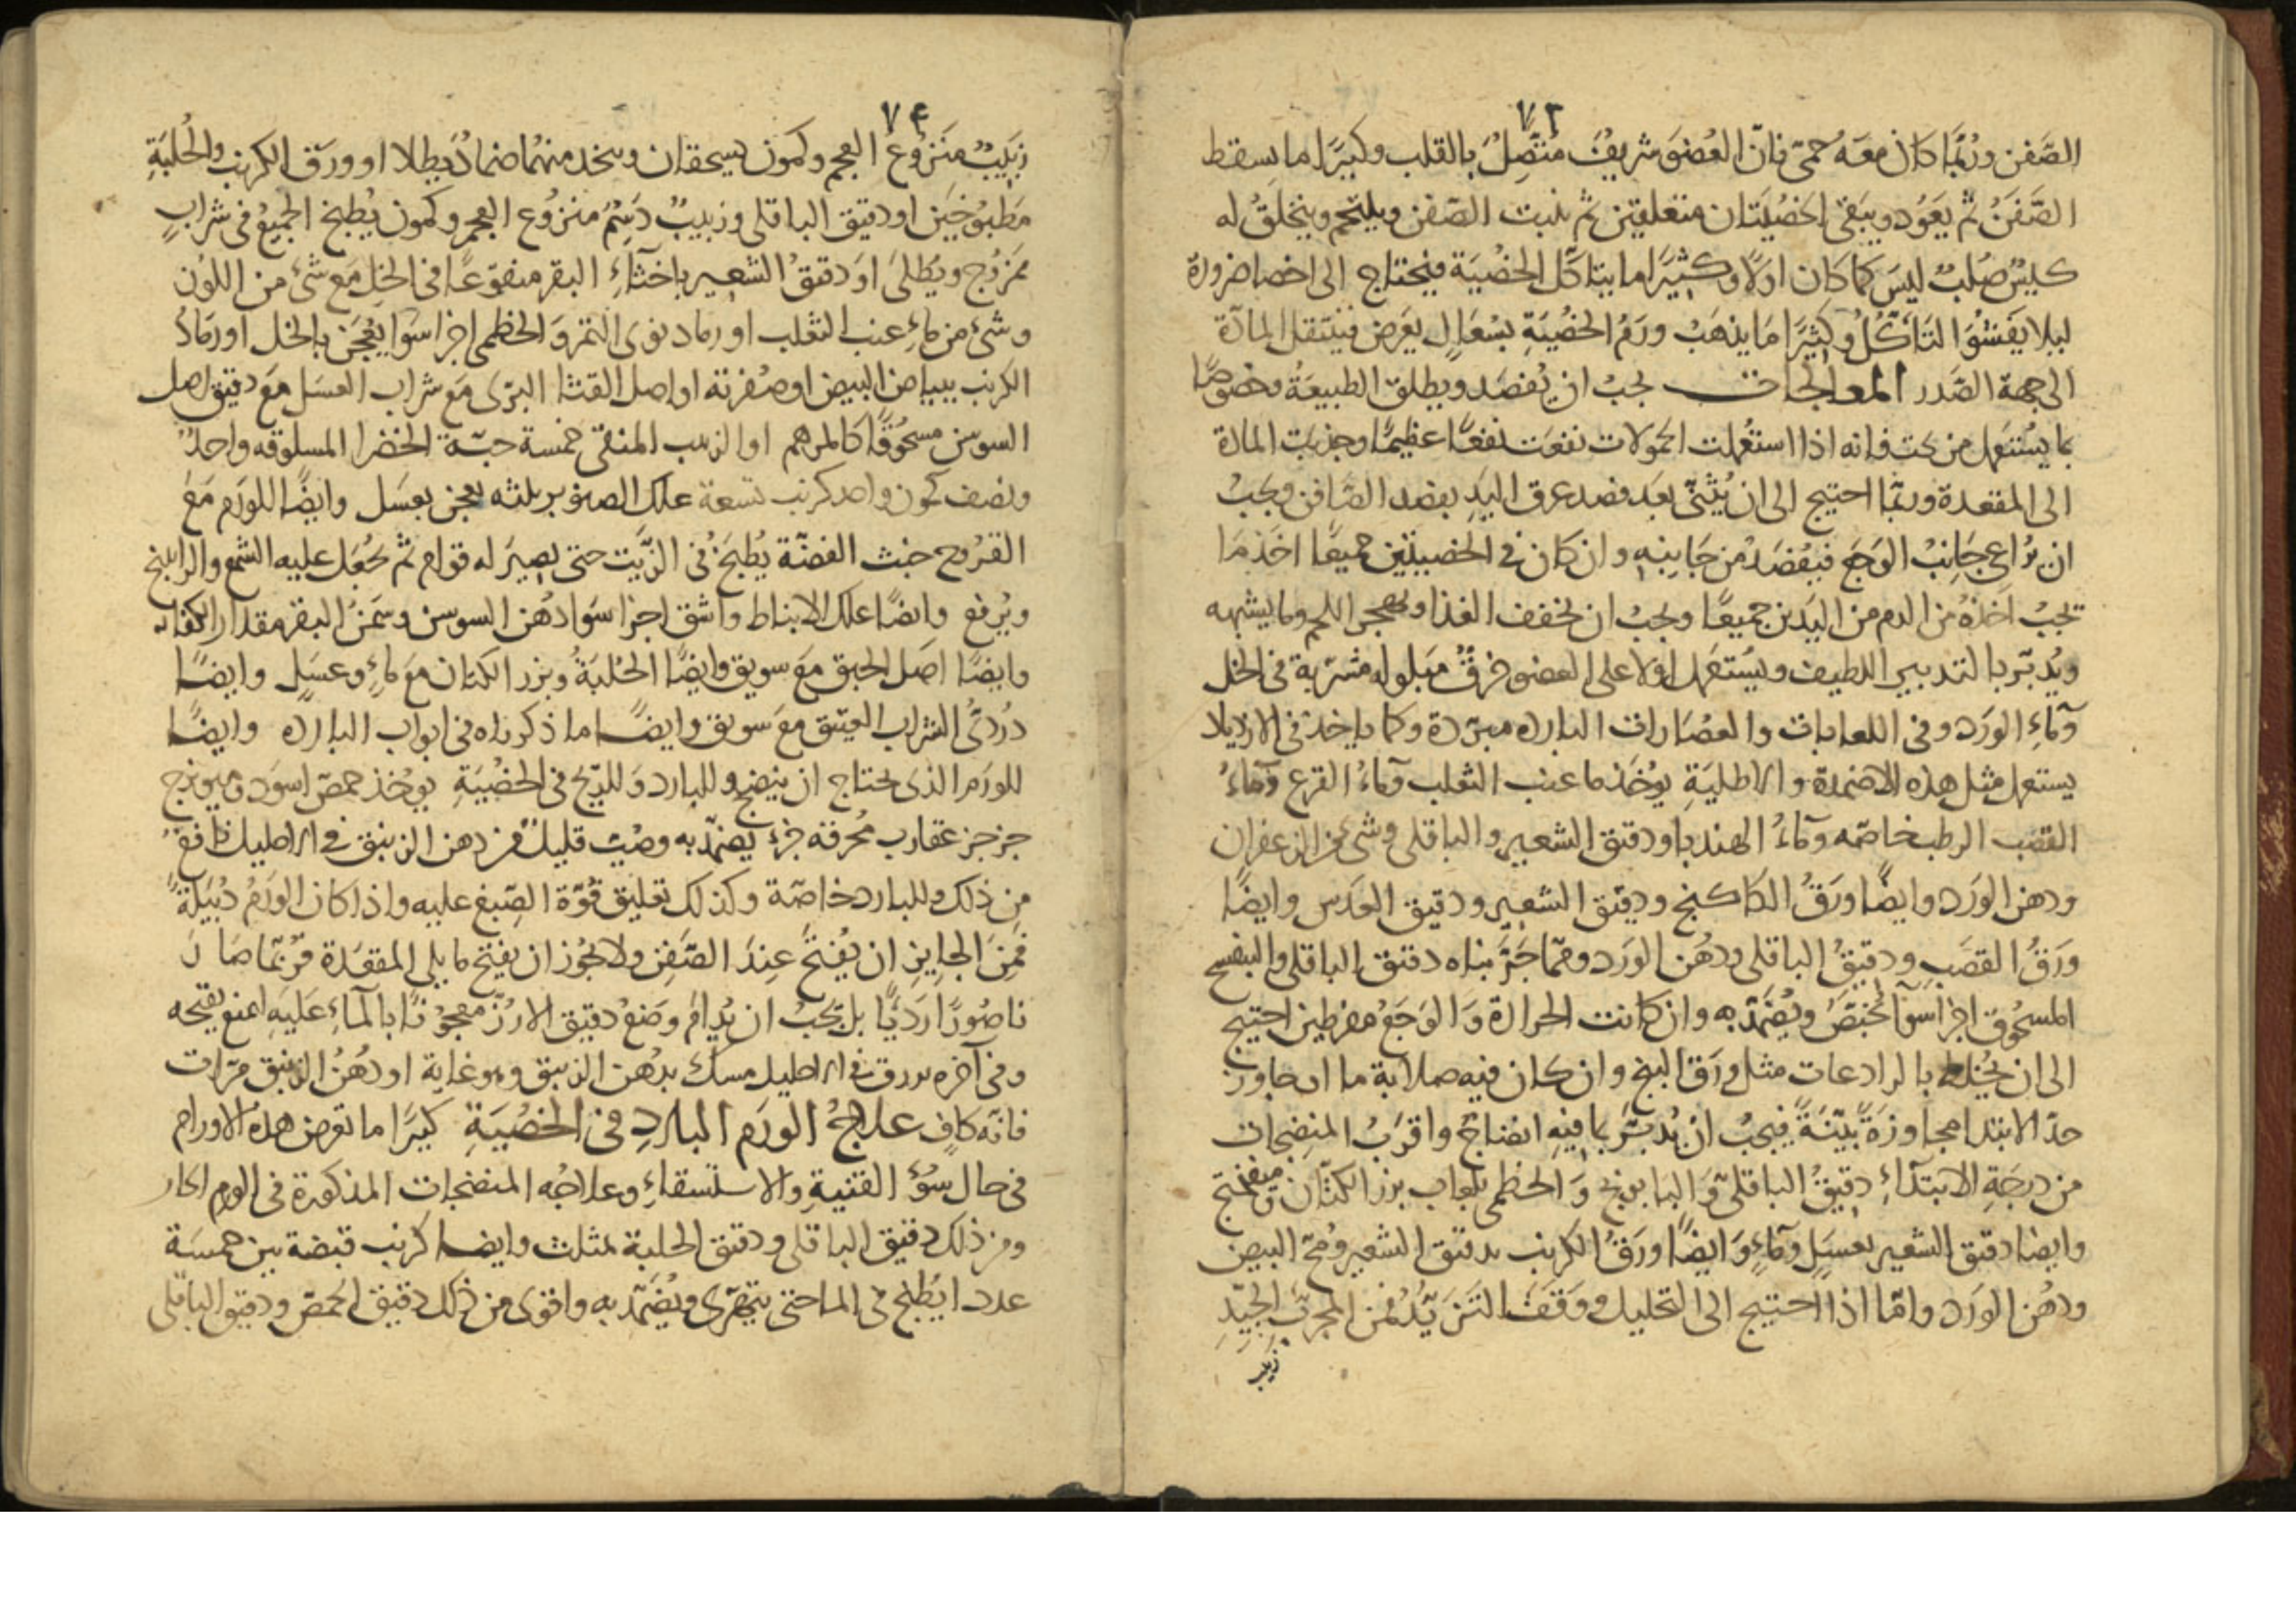 ٧٣
الصَّفن ورُبَّما كان معَه حُمىّ فانّ العُضوَ شريفٌ مُتصِلٌ بالقلب وكثيرًا ما يسقط
الصَّفنُ ثمّ يَعوُد ويبَقىَ الخُصيَتَان متعلقتين ثم ينبت الصّفن ويلتحم ويتخلقُ له
كليسٌ صُلبٌ ليسَ كما كان اولًا وكثيًرا ما يتاكل الخُصْيَة فيحتاج الى اخصا ضرورة
ليلا يَفَشُوَا التَاكّلُ وكثيًرا مَا يذهَبُ ورَمُ الخُصْيَةِ بسُعَالٍ يَعرَض فينتقل المادّة
الى جهة الصّدر المعالجات يجبُ ان يُفصَد ويطلق الطبيعَةُ وخصوصًا
بما يُستَعمل من تحت فانه اذا استعُملت الحمولات نفعَت نفعًا عظيمًا وجذبت المادة
الى المقعدة وربّما احتيج الى ان يُثَنّى بعَد فصد عرق اليَدِ بفصد الصَّافن ويجبُ
ان يُرَاعىَ جَانبُ الوَجَع فيُفصَدُ من جَانبِهِ وان كان في الخصيتَين جميعًا اخذ مَا
يجبُ اخذُهُ من الدم من اليَدَين جميعًا ويجبُ ان يخفف الغذا ويهجر اللحم وما يشبهه
ويُدبّر بالتدبير اللطيف ويُستَعمل اولا على العضو خرقٌ مبلوله مشربة في الخل
وماءِ الورَد وفي اللعابات والعصَارات البارده مبرّدة وكما ياخذ في الازيلا
يستعمل مثل هذه الاضمدة والاطليَةِ يوُخَذ ما عنب الثعلب وماءُ القرع وماءُ
القصَب الرطب خاصّه وماءُ الهندبا ودقيق الشعير والباقلى وشئ من الزعفران
ودهن الورَد وايضًا ورَقُ الكاكنج ودقيق الشعير ودقيق العدَس وايضًا
ورَقُ القصَبِ ودقيقُ الباقلى ودهُن الورَد وممّا جَرَّبناه دقيق الباقلى والبنفسج
المسحُوق اجزا سوَآ يُخبَّصُ ويُضَمَّدُ به وان كانت الحرارة وَالوَجَعُ مفرطين احتيج
الى ان يُخلط بالرادعات مثل ورَق البنج وان كان فيه صلابة ما او جاوز
حدّ الابتدا مجاوزةً بيّنَةً فيجبُ انْ يُدبَّر بما فيهِ انضاج واقرَبُ المنضِجات
من درجَةِ الابتدَاءِ دقيقُ الباقلىّ وَالبابونج وَالخطمى بلعاب بزر الكتّان وميفختج
وايضا دقيق الشعير بعسَلٍ وماءٍ وَايضًا ورَقُ الكرنب بدقيق الشعير ومُحّ البيض
ودهُن الورَد وامّا اذا احتيج الى التحليل ووَقَفَ التَزيّدُ فمن المجرّب الجيّدِ
زبيب
٧٤
زبَيبٌ منَزوُعُ العجم وكمون يسحقان ويتخد منهُما ضمادٌ يطلا او ورَق الكرنب والحُلبَةِ
مَطبوُخيَن او دقيق الباقلى وزبيبٌ دَسِمٌ منزوُع العجم وكمون يُطبخ الجميعُ في شرابٍ
ممَزوُج ويُطلىَ اوَ دقيقُ الشعير باخثآءِ البقر منقوَعًا في الخلِ مَع شئ من اللوُن
وشئ من ماءِ عنب الثعَلب او رماد نوى التمر وَالخطمى اجزا سوَا يُعجَن بالخل او رمَادُ
الكرنب ببياض البيض او صُفرته او اصل القثا البرّى مَع شراب العسَل مَع دقيق اصل
السوسَن مسحُوقًا كالمرهم او الزبيب المنقى خمسة حبّة الخضرا المسلوقه واحدٌ
ونصف كمون واحد كرنب تسعة علك الصنوبر بلثه يعجن بعسَل وايضًا للورَم مَعَ
القرُوح خبث الفضّة يُطبَخُ في الزَّيت حتى يصير له قوام ثم يُجعَل عليه الشمع والراتينج
ويُرفع وايضًا علك الانباط واشق اجزا سَوَا دهُن السوسن وسَمنُ البقر مقدار الكفايه
وايضًا اصَل الحبق مَعَ سويق وايضًا الحُلبَةُ وبزر الكتان معَ ماءٍ وعسَلٍ وايضًا
دُردىُّ الشراب العتيق مَعَ سَويق وايضًا ما ذكرناه في ابواب البارده وايضًا
للورَم الذى يحتاج ان ينضج وللبارد وَللريح في الخصُيَةِ يوُخذ حمصّ اسوَد وميويزج
جز جز عقارب مُحرقه جُزءٌ يضمّد به وصُبّ قليلٌ من دهن الزنبق في الاحليل نافعٌ
من ذلك وللبارد خاصّة وكذلك تعليق فُوّة الصّبغ عليه واذا كان الورَمُ دُبَيلَةً
فمَنَ الجايز ان يُفتَحَ عِندَ الصَّفِن ولا يجُوز ان يفتح مما يلى المقعَدة فرُبَّما صَارَ
ناصُورًا ردَيًّا بل يَجبُ ان يُدامَ وَضعُ دقيق الارُزّ معجوُنًا بالمآءِ عَليَهِ امنع بفتحه
وفي آخره يزرق في الاحليل مسك بدُهن الزنبق وهو غاية او دهُنُ الزنبق مرّات
فانّه كافٍ علاجُ الورَم البارِد في الخصُيَةِ كثيرًا ما تعرض هذه الاورام
في حال سُوءِ القنيةِ والاستسقاءِ وعلاجُه المنضجات المذكورة في الورم الحار
ومن ذلك دقيق الباقلى ودقيق الحلبة بمثلث وايضا كرنب قبضة تين خمسَة
عددا يُطبخ في الما حتى يتهرّى ويُضَمّد به واقوى من ذلك دقيق الحمص ودقيق الباقلى